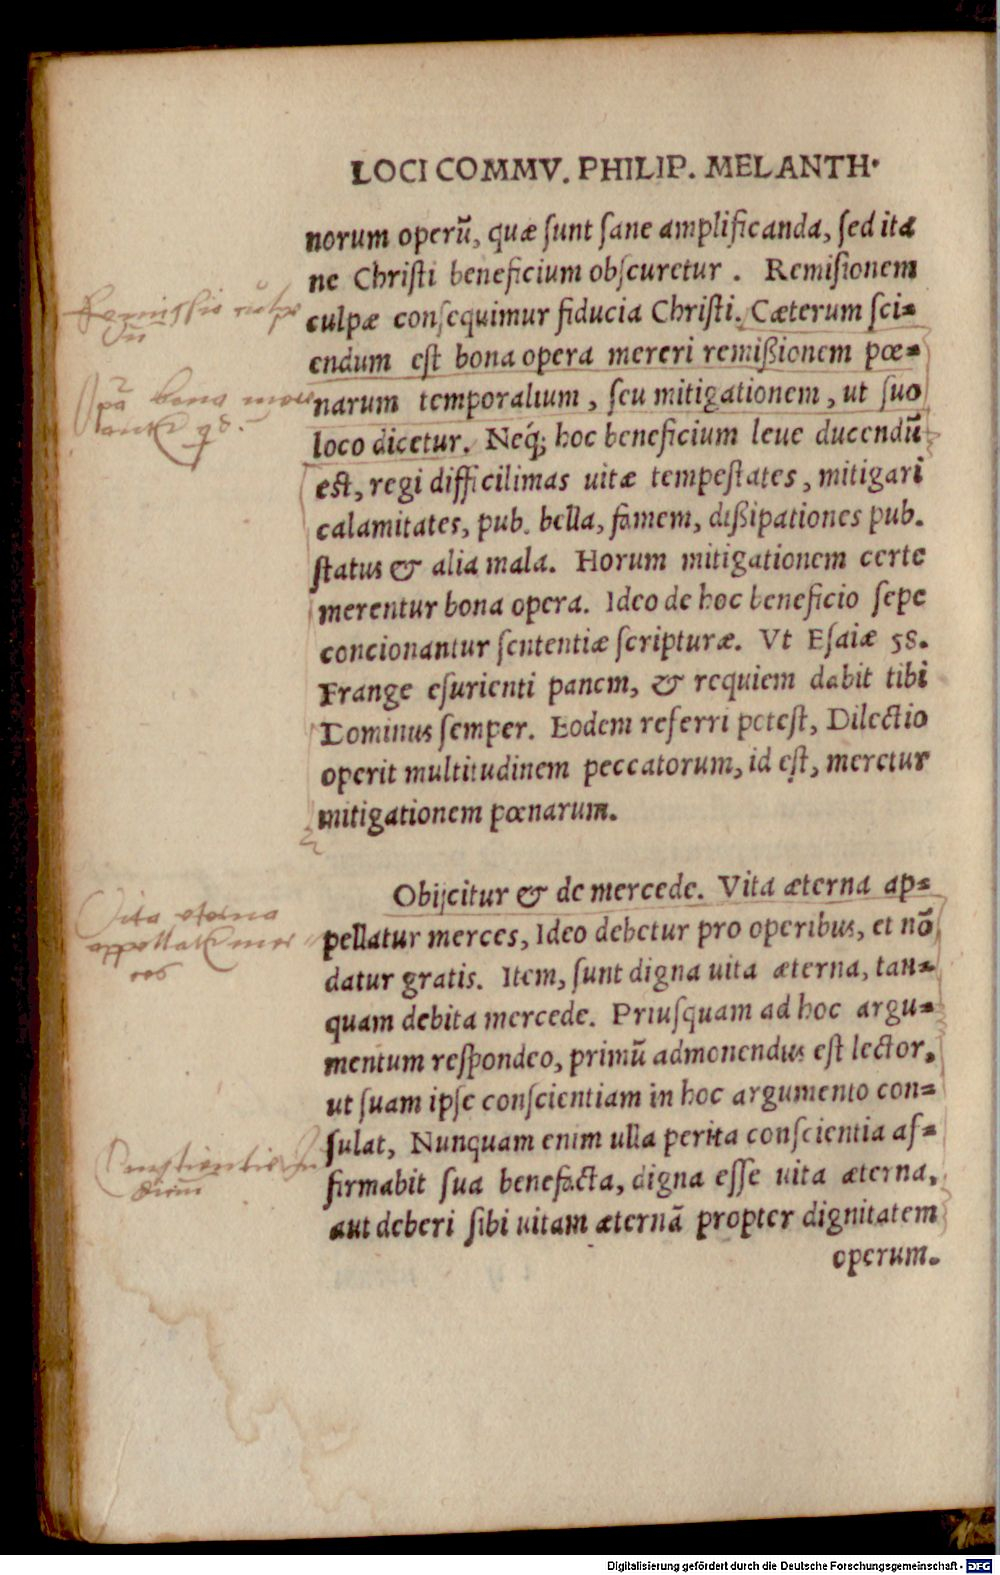 LOCI COMMV. PHILIP. MELANTH·
norum operū, quæ ſunt ſane amplificanda, ſed ita
ne Chriſti beneficium obſcuretur . Remiſionem
culpæ conſequimur fiducia Chriſti. Cæterum ſci-
endum eſt bona opera mereri remißionem pœ-
narum temporalium , ſeu mitigationem , ut ſuo
loco dicetur. Neq́; hoc beneficium leue ducendū
eſt, regi difficilimas uitæ tempeſtates , mitigari
calamitates, pub. bella, famem, dißipationes pub.
ſtatus & alia mala. Horum mitigationem certe
merentur bona opera. Ideo de hoc beneficio ſepe
concionantur ſententiæ ſcripturæ. Vt Eſaiæ 58.
Frange eſurienti panem, & requiem dabit tibi
Dominus ſemper. Eodem referri poteſt, Dilectio
operit multitudinem peccatorum, id eſt, meretur
mitigationem pœnarum.
Obijcitur & de mercede. Vita æterna ap-
pellatur merces, Ideo debetur pro operibus, et nō
datur gratis. Item, ſunt digna uita æterna, tan-
quam debita mercede. Priuſquam ad hoc argu-
mentum reſpondeo, primū admonendus eſt lector,
ut ſuam ipſe conſcientiam in hoc argumento con-
ſulat, Nunquam enim ulla perita conſcientia af-
firmabit ſua benefacta, digna eſſe uita æterna,
aut deberi ſibi uitam æternā propter dignitatem
operum.
Vita eterna
Digitalisierung gefördert durch die Deutsche Forschungsgemeinschaft - DFG